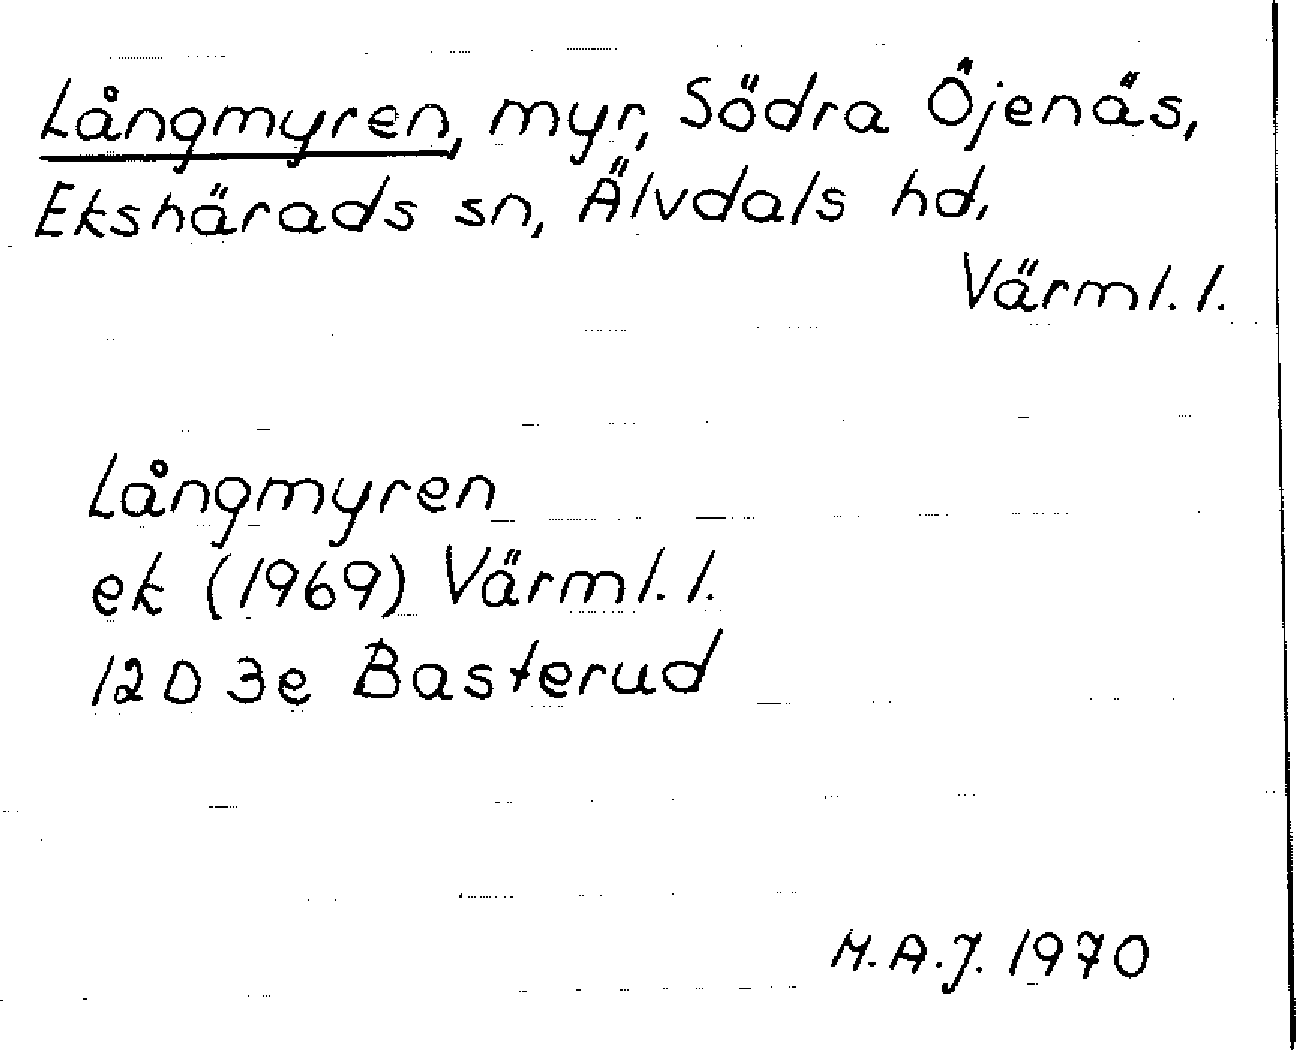 Långmyren, myr, Södra Öjenäs,
Ekshärads sn, Älvdals hd,
Värml. l.
Långmyren
ek (1969) Värml. l.
12D 3e Basterud
M.A.J. 1970